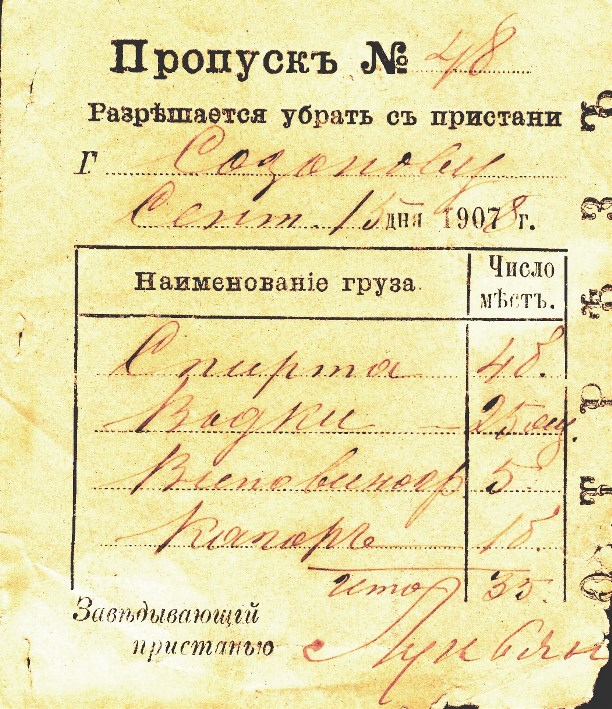 Пропускъ № 48
Разрѣшается убрать съ пристани
Г Созонову
Сент. 15 дня 1908 г.
Наименованіе груза
Число мѣстъ.
Спирта 4 б.
Водки – 25 ящ.
Вино виногр 5
1 б.
Итого 35.
Завѣдывающій
пристанью
ОТРѢЗЪ